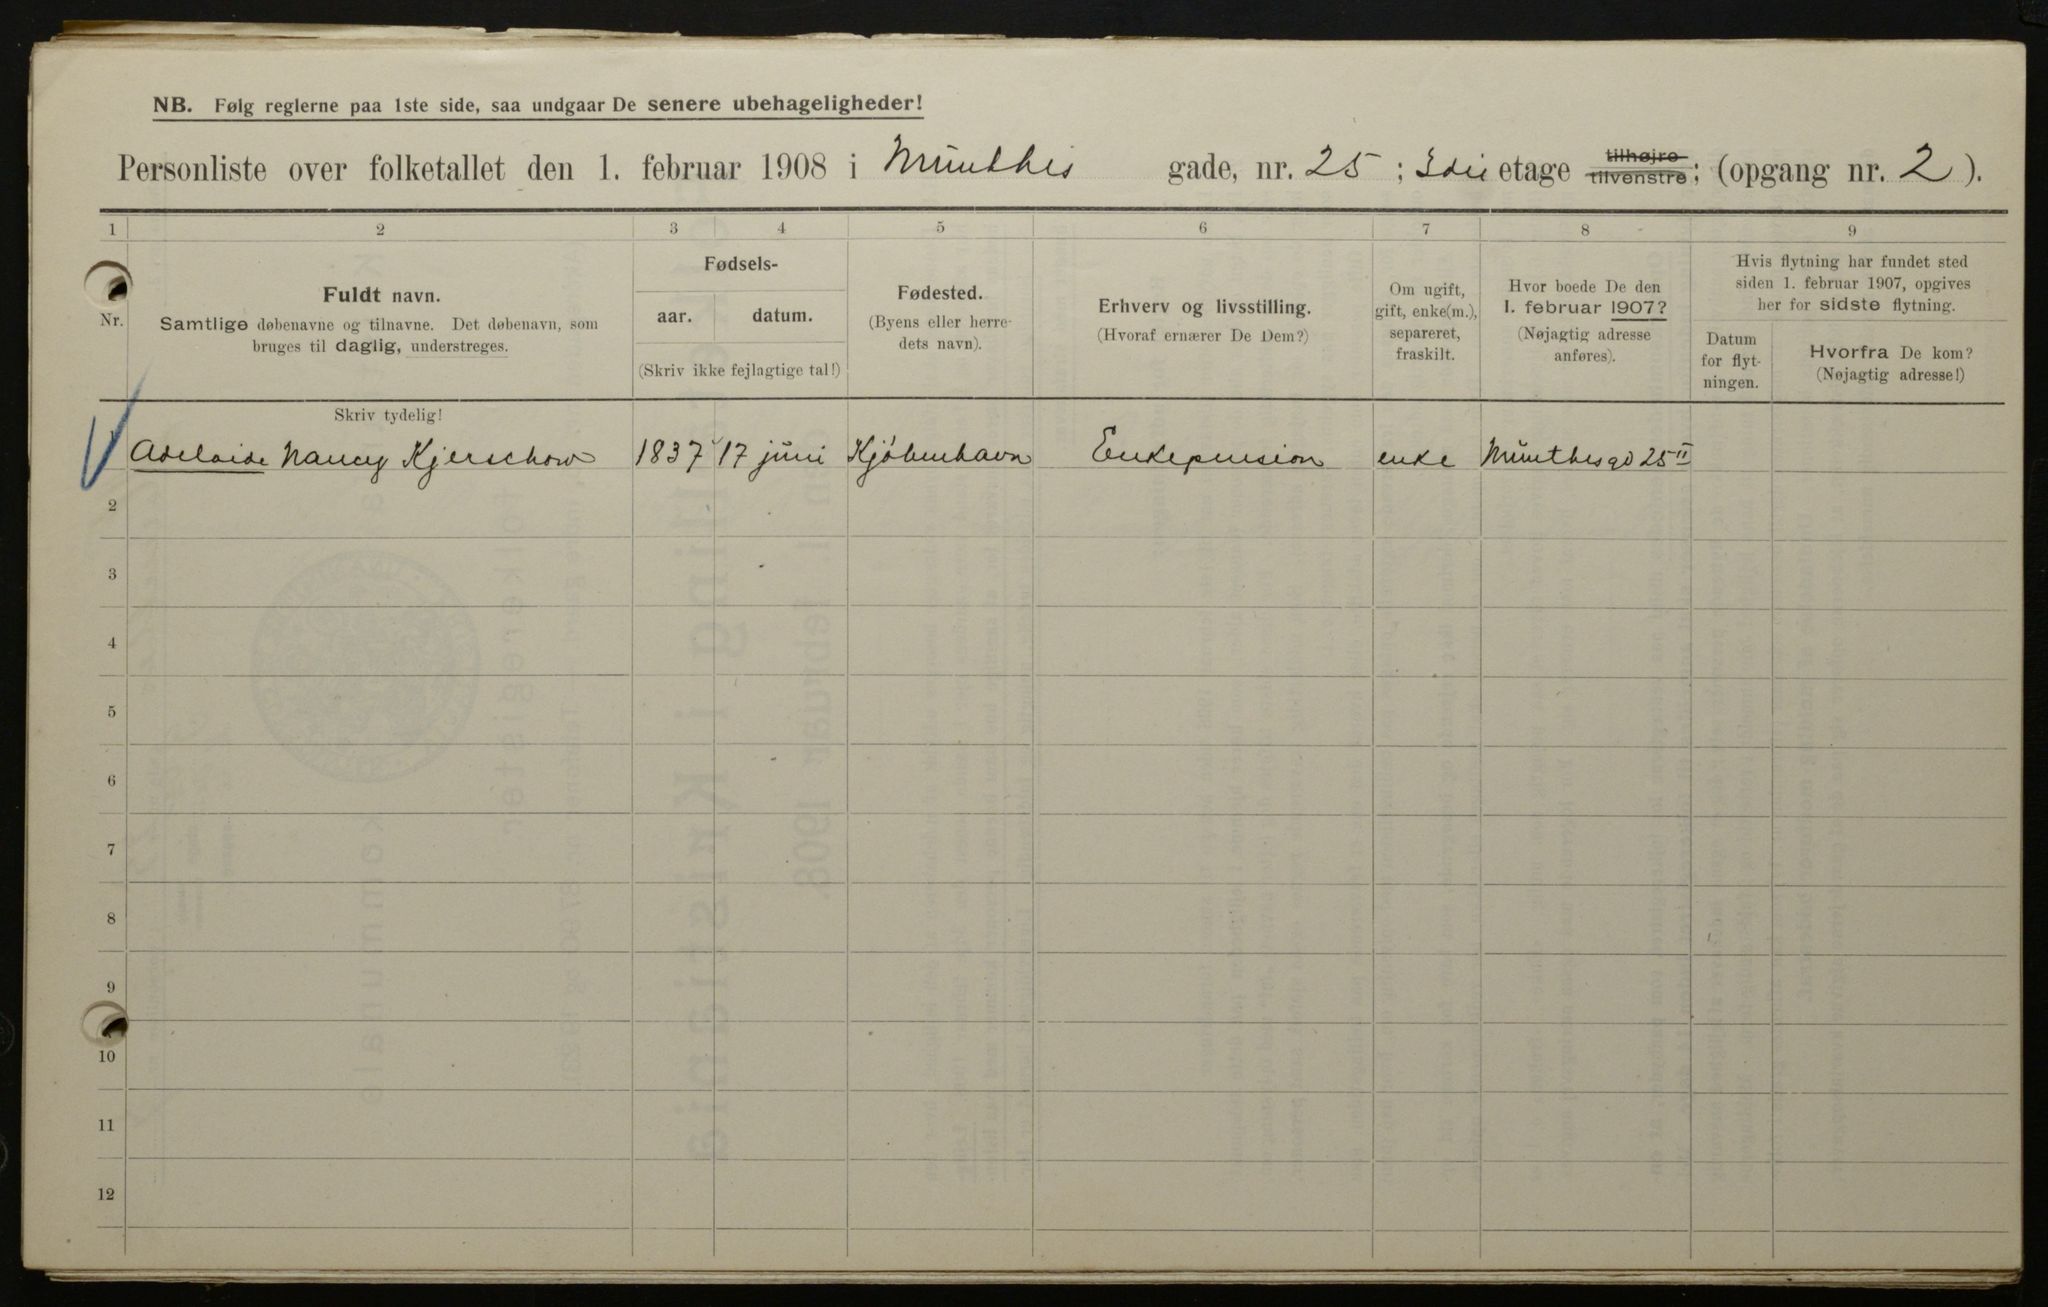 NB. Følg reglerne paa 1ste side, saa undgaar De senere ubehageligheder!
Personliste over folketallet den 1. februar 1908 i Munthes gade, nr. 25; 3die etage tilhøjre tilvenstre; (opgang nr. 2).
1 2 3 4 5 6 7 8 9
Nr.
Fuldt navn.
Samtlige døbenavne og tilnavne. Det døbenavn, som
bruges til daglig, understreges.
Skriv tydelig!
Fødsels-
aar. datum.
(Skriv ikke fejlagtige tal!)
Fødested.
(Byens eller herre-
dets navn).
Erhverv og livsstilling.
(Hvoraf ernærer De Dem?)
Om ugift,
gift, enke(m.),
separeret,
fraskilt.
Hvor boede De den
1. februar 1907?
(Nøjagtig adresse
anføres).
Hvis flytning har fundet sted
siden 1. februar 1907, opgives
her for sidste flytning.
Datum
for flyt-
ningen.
Hvorfra De kom?
(Nøjagtig adresse!)
1 Adelaide Nancy Kjerschow 1837 17 juni Kjøbenhavn Enkepension enke Munthesgd 25 II
2
3
4
5
6
7
8
9
10
11
12